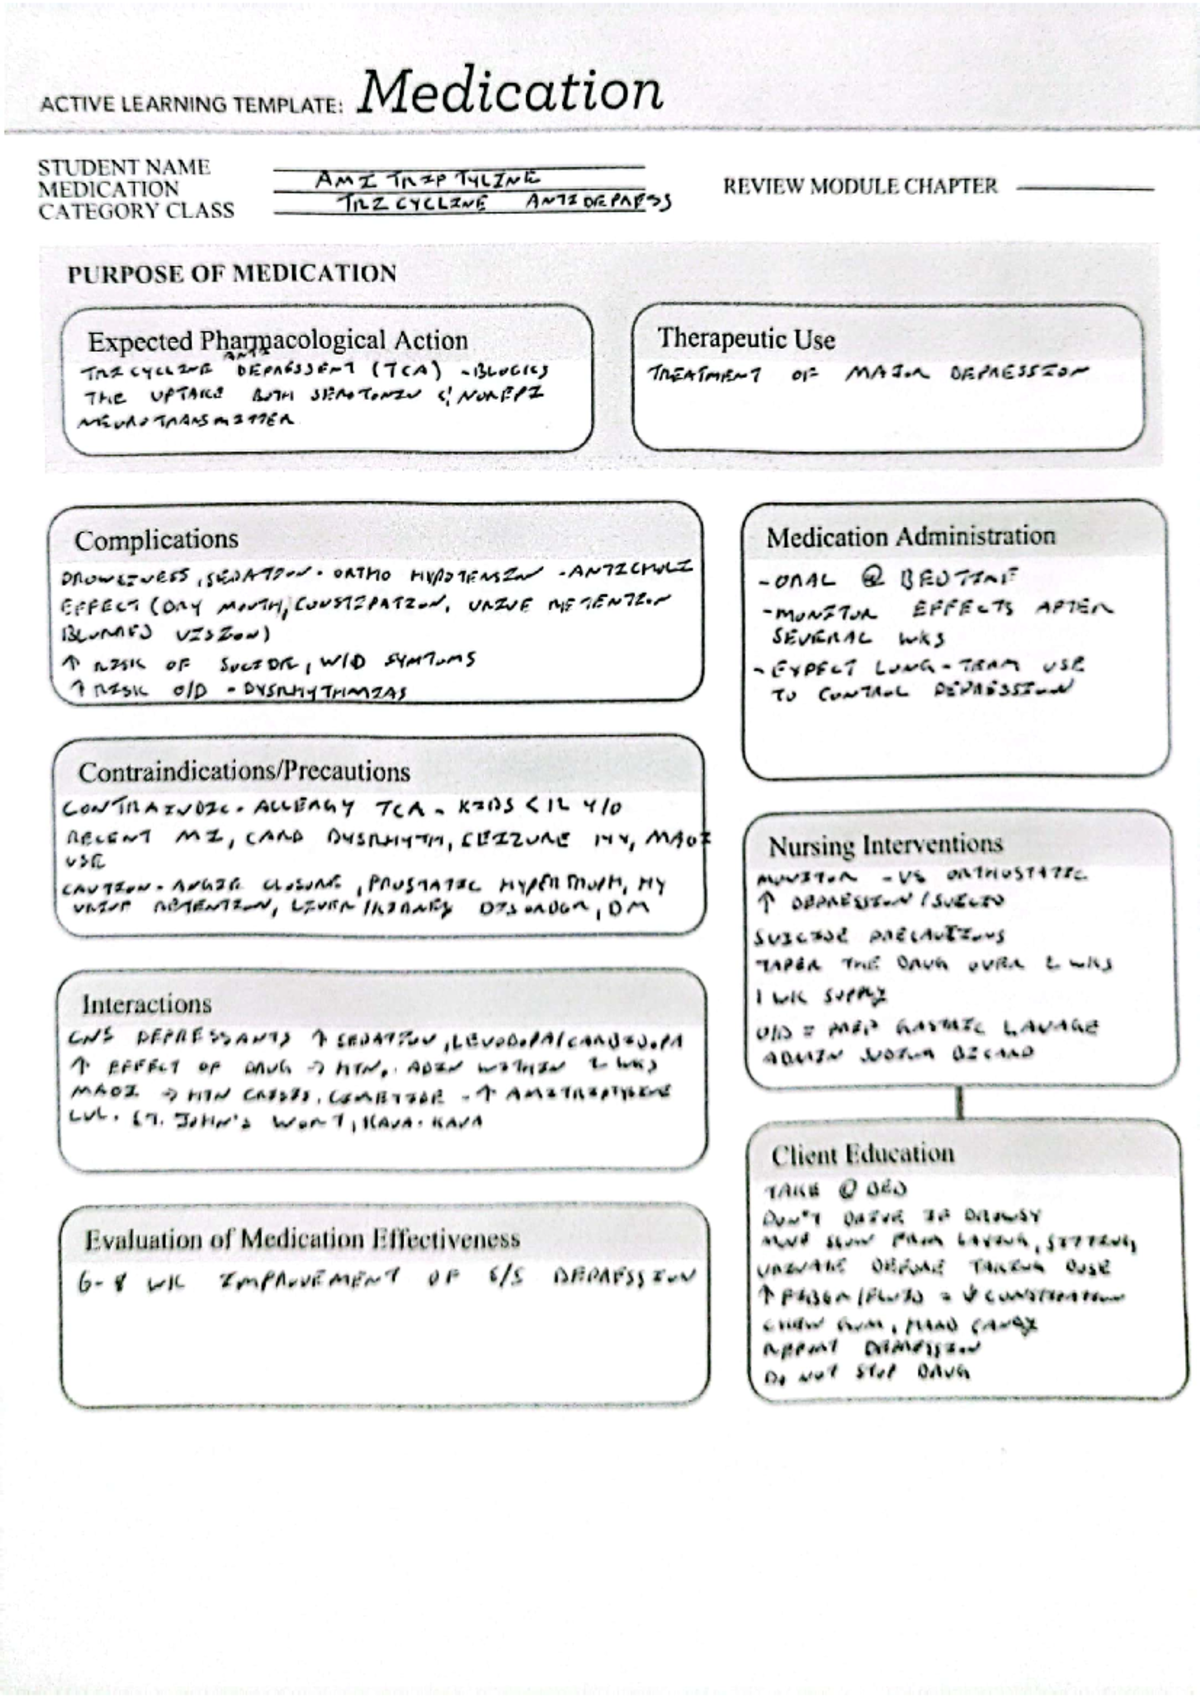 ACTIVE LEARNING TEMPLATE: Medication
STUDENT NAME
MEDICATION AMITRIPTYLINE
CATEGORY CLASS TRICYCLINE ANTIDEPRESS
REVIEW MODULE CHAPTER
PURPOSE OF MEDICATION
Expected Pharmacological Action
ANTI
TRICYCLINE DEPRESSENT (TCA) - BLOCKS
THE UPTAKE BOTH SEROTONIN & NOREPI
NEUROTRANSMITTER
Therapeutic Use
TREATMENT OF MAJOR DEPRESSION
Complications
DROWSINESS, SEDATION - ORTHO HYPOTENSION - ANTICHOLI
EFFECT (DRY MOUTH, CONSTIPATION, URINE RETENTION
BLURRED VISION)
↑ RISK OF SUICIDE, W/D SYMTOMS
↑ RISK O/D - DYSRHYTHMIAS
Medication Administration
- ORAL @ BEDTIME
- MONITOR EFFECTS AFTER
SEVERAL WKS
- EXPECT LONG-TERM USE
TO CONTROL DEPRESSION
Contraindications/Precautions
CONTRAINDIC - ALLERGY TCA - KIDS < 12 Y/O
RECENT MI, CARD DYSRHYTM, SEIZURE HX, MAOI
USE
CAUTION - ANGLE CLOSURE, PROSTATIC HYPERTROPH, HX
URINE RETENTION, LIVER/KIDNEY DISORDER, DM
Nursing Interventions
MONITOR - VS ORTHOSTATIC
↑ DEPRESSION/SUICID
SUICIDE PRECAUTIONS
TAPER THE DRUG OVER 2 WKS
1 WK SUPPLY
O/D = PREP GASTRIC LAVAGE
ADMIN SODIUM BICARB
Interactions
CNS DEPRESSANTS ↑ SEDATION, LEVODOPA/CARBIDOPA
↑ EFFECT OF DRUG → HTN, WITHIN 2 WKS
MAOI → HTN CRISIS, - ↑ AMITRIPTYLINE
LVL. ST. JOHN'S WORT, KAVA-KAVA
Client Education
TAKE @ BED
DON'T DRIVE IF DROWSY
MOVE SLOW FROM LAYING, SITTING,
URINATE BEFORE TAKING DOSE
↑ FIBER/FLUID = ↓ CONSTIPATION
CHEW GUM, HARD CANDY
REPORT DEPRESSION
DO NOT STOP DRUG
Evaluation of Medication Effectiveness
6-8 WK IMPROVEMENT OF S/S DEPRESSION